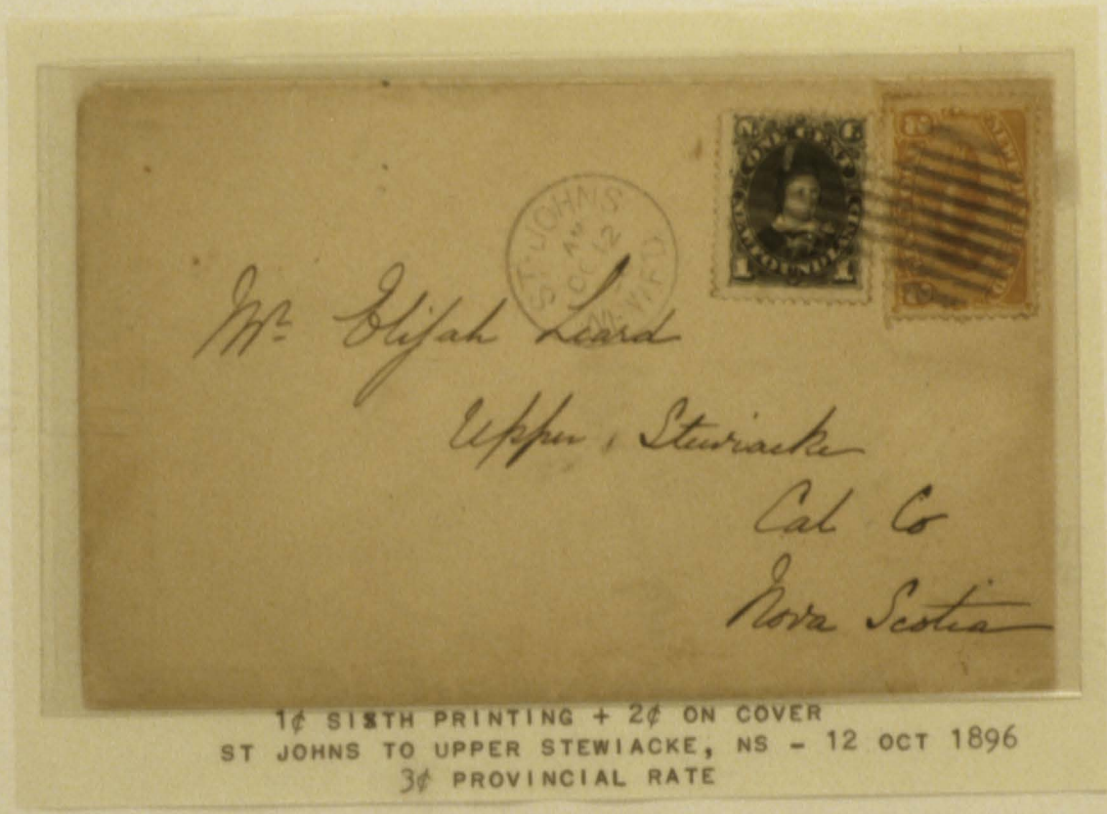 ST. JOHNS
AM
OC 12
NEWF'D
ONE CENT
NEWFOUNDLAND
1 1
Mr. Elijah Leard
Upper Stewiacke
Col Co
Nova Scotia
1¢ SIXTH PRINTING + 2¢ ON COVER
ST JOHNS TO UPPER STEWIACKE, NS - 12 OCT 1896
3¢ PROVINCIAL RATE